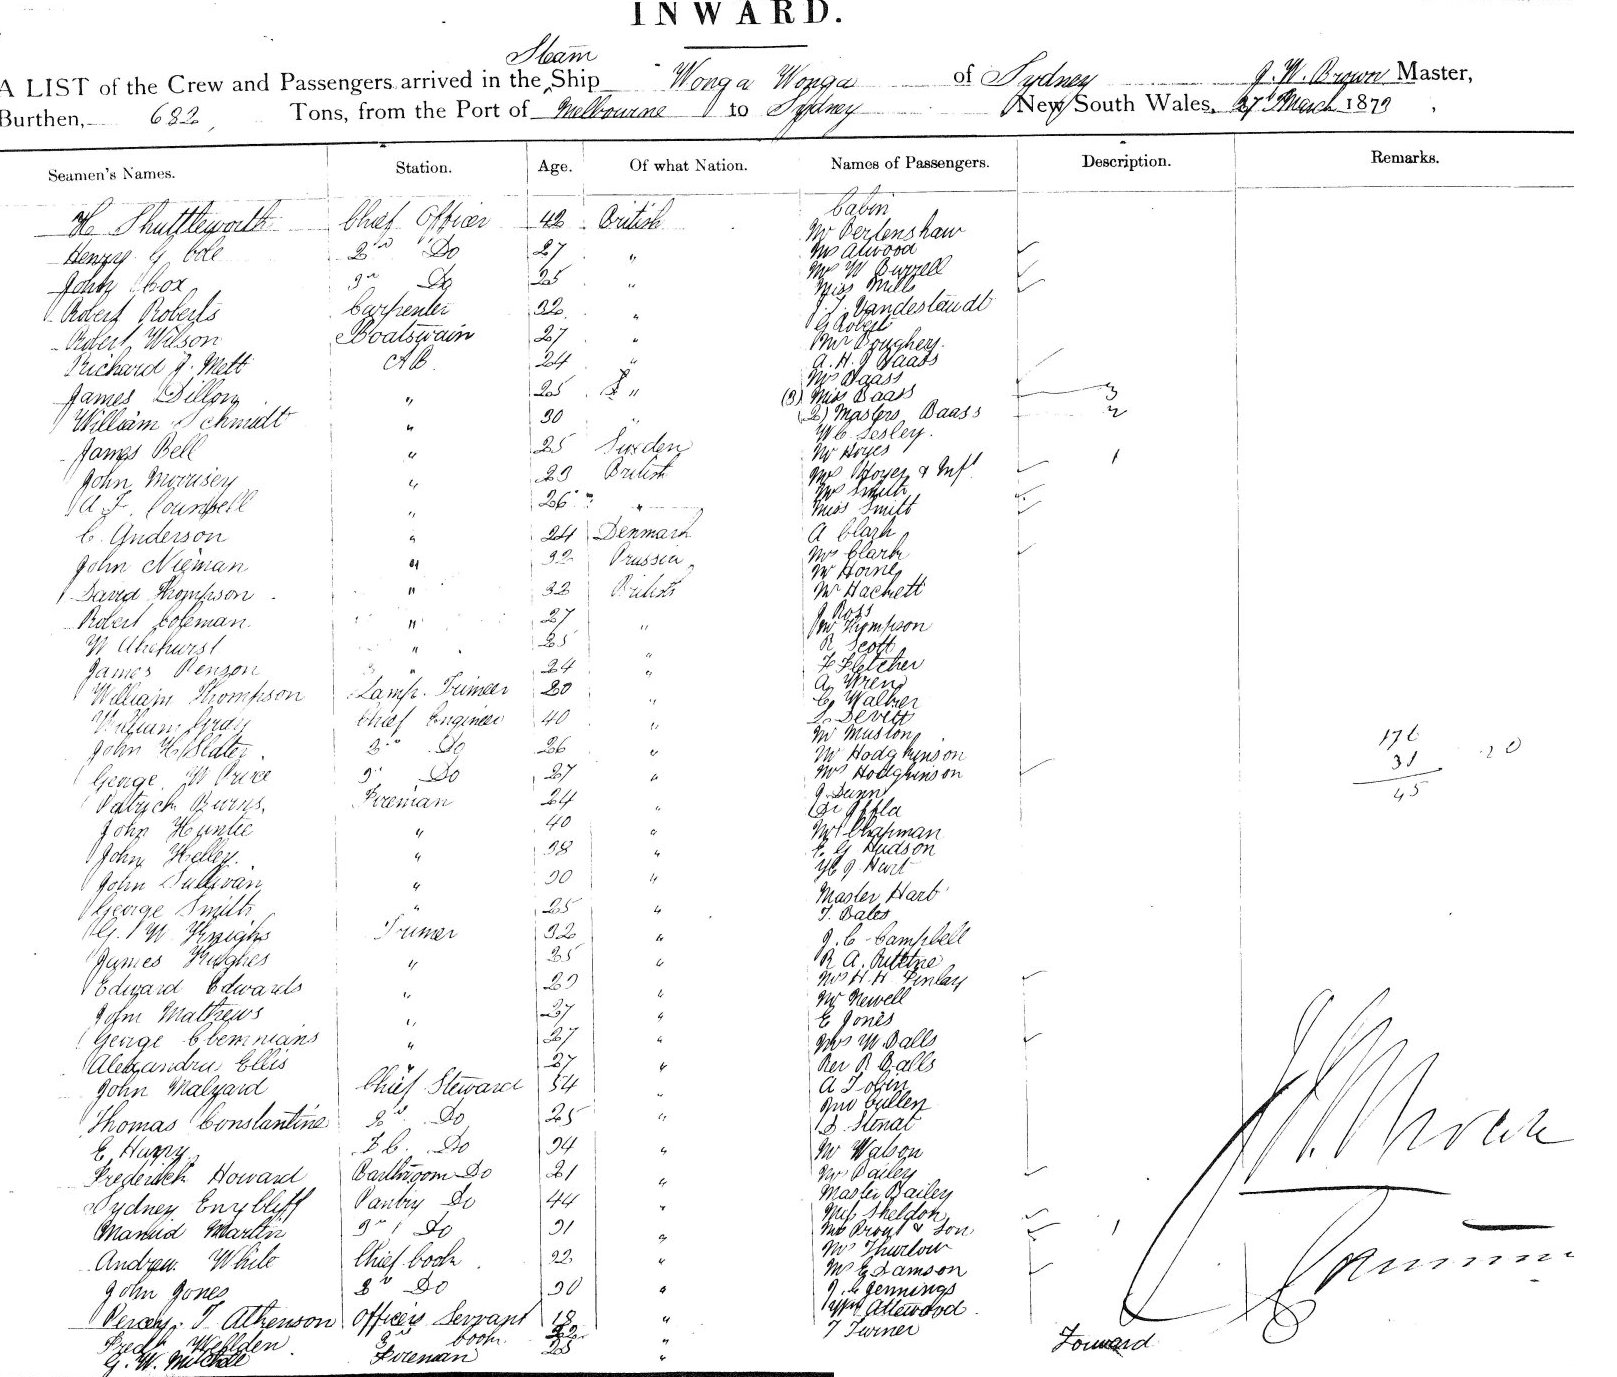 INWARD.
Steam
A LIST of the Crew and Passengers arrived in the Ship Wonga Wonga of Sydney J. W. Brown Master,
Burthen, 682 Tons, from the Port of Melbourne to Sydney New South Wales, 27 March 1872
Seamen's Names. Station. Age. Of what Nation. Names of Passengers. Description. Remarks.
Cabin
H Shuttleworth Chief Officer 42 British Mr Pertenshaw
Henry G Cole 2nd Do 27 " Mrs Atwood
John Cox 3rd Do 25 " Mrs W Burrell
Miss Mills
Robert Roberts Carpenter 32 " Vandestaudt
Robert Wilson Boatswain 27 " G Robert
Mr Doughery
Richard J. Mett AB 24 " A. H. J Baass
Mrs Baass
James Dillon " 25 " (3) Miss Baass 3
William Schmidt " 30 (2) Masters Baass 2
W C Sesley.
James Bell " 25 Sweden Mr Hoyes
John Morrisey " 23 British Mrs Hoyes & Inft 1
Mrs Smith
A F. Counsell " 26 " Miss Smith
C. Anderson " 24 Denmark A Clark
John Nieman " 32 Prussia Mrs Clark
Mr Horne
David Thompson " 32 British Mr Hackett
Robert Coleman " 27 " J Ross
Mr Kympson
W " 25 " R Scott
James Benson " 24 F Fletcher
William Thompson Lamp Trimer 20 " A Wren
C Walker
William Gray Chief Engineer 40 " S Devitt
John H Slater 2nd Do 26 " Mr Muston
Mr Hodgkinson
George W Price 3rd Do 27 " Mrs Hodgkinson
Patrick Burns Fireman 24 " J Dunn
John Huntie " 40 " Mr Chapman
John Kelley " 38 " E G Hudson
H J Hart
John Sullivan " 30 " Master Hart
George Smith " 25 " T. Bales
G. W Knights Trimer 32 " J. C Campbell
James Hughes " 25 " R A.
Mrs H H Finlay
Edward Edwards " 29 " Mr Newell
John Mathews " 27 " E Jones
George Clemmans " 27 " Mrs W Balls
Alexandra Ellis " 27 " Rev R Balls
John Malyard Chief Steward 54 A Tobin
Jno Cullen
Thomas Constantine 2nd Do 25 " D Stenat
E Harry F C. Do 34 " Mr Watson
Frederick Howard Bathroom Do 21 " Mr Bailey
Master Bailey
Sydney Pantry Do 44 " Miss Sheldon
Martin 3rd Do 31 " Mrs Prout & Son 1
Mrs Thurlow
Andrew White Chief Cook 22 " Mrs G Samson
John Jones 2nd Do 30 " J. C Jennings
Percy T Atkenson Officers Servant 18 " Wm Attewood
Fredk Wellden 3rd Cook 22 T Turner
G. W. Mitchell Fireman 28 "
176
31
45
20
Forward